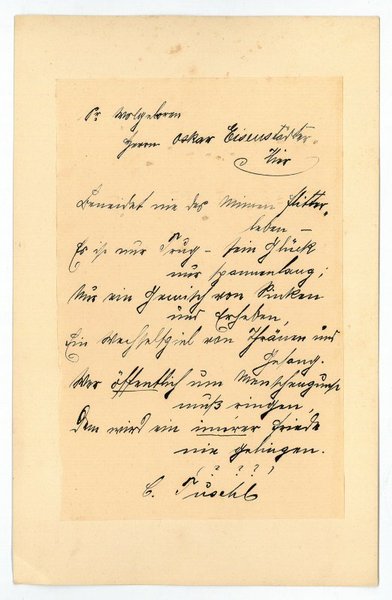 Sr Wolgeboren
Herrn Oskar Eisenstädter
Hier
Beneidet nie des Mimen Flitter-
leben –
Es ist nur Trug – sein Glück
nur spannenlang;
Nur ein Gemisch von Sinken
und Erheben,
Ein Wechselspiel von Thränen und
Gesang.
Wer öffentlich um Menschengunst
muß ringen,
Dem wird ein innerer Friede
nie gelingen.
(? ? ?)
C. Tuschl